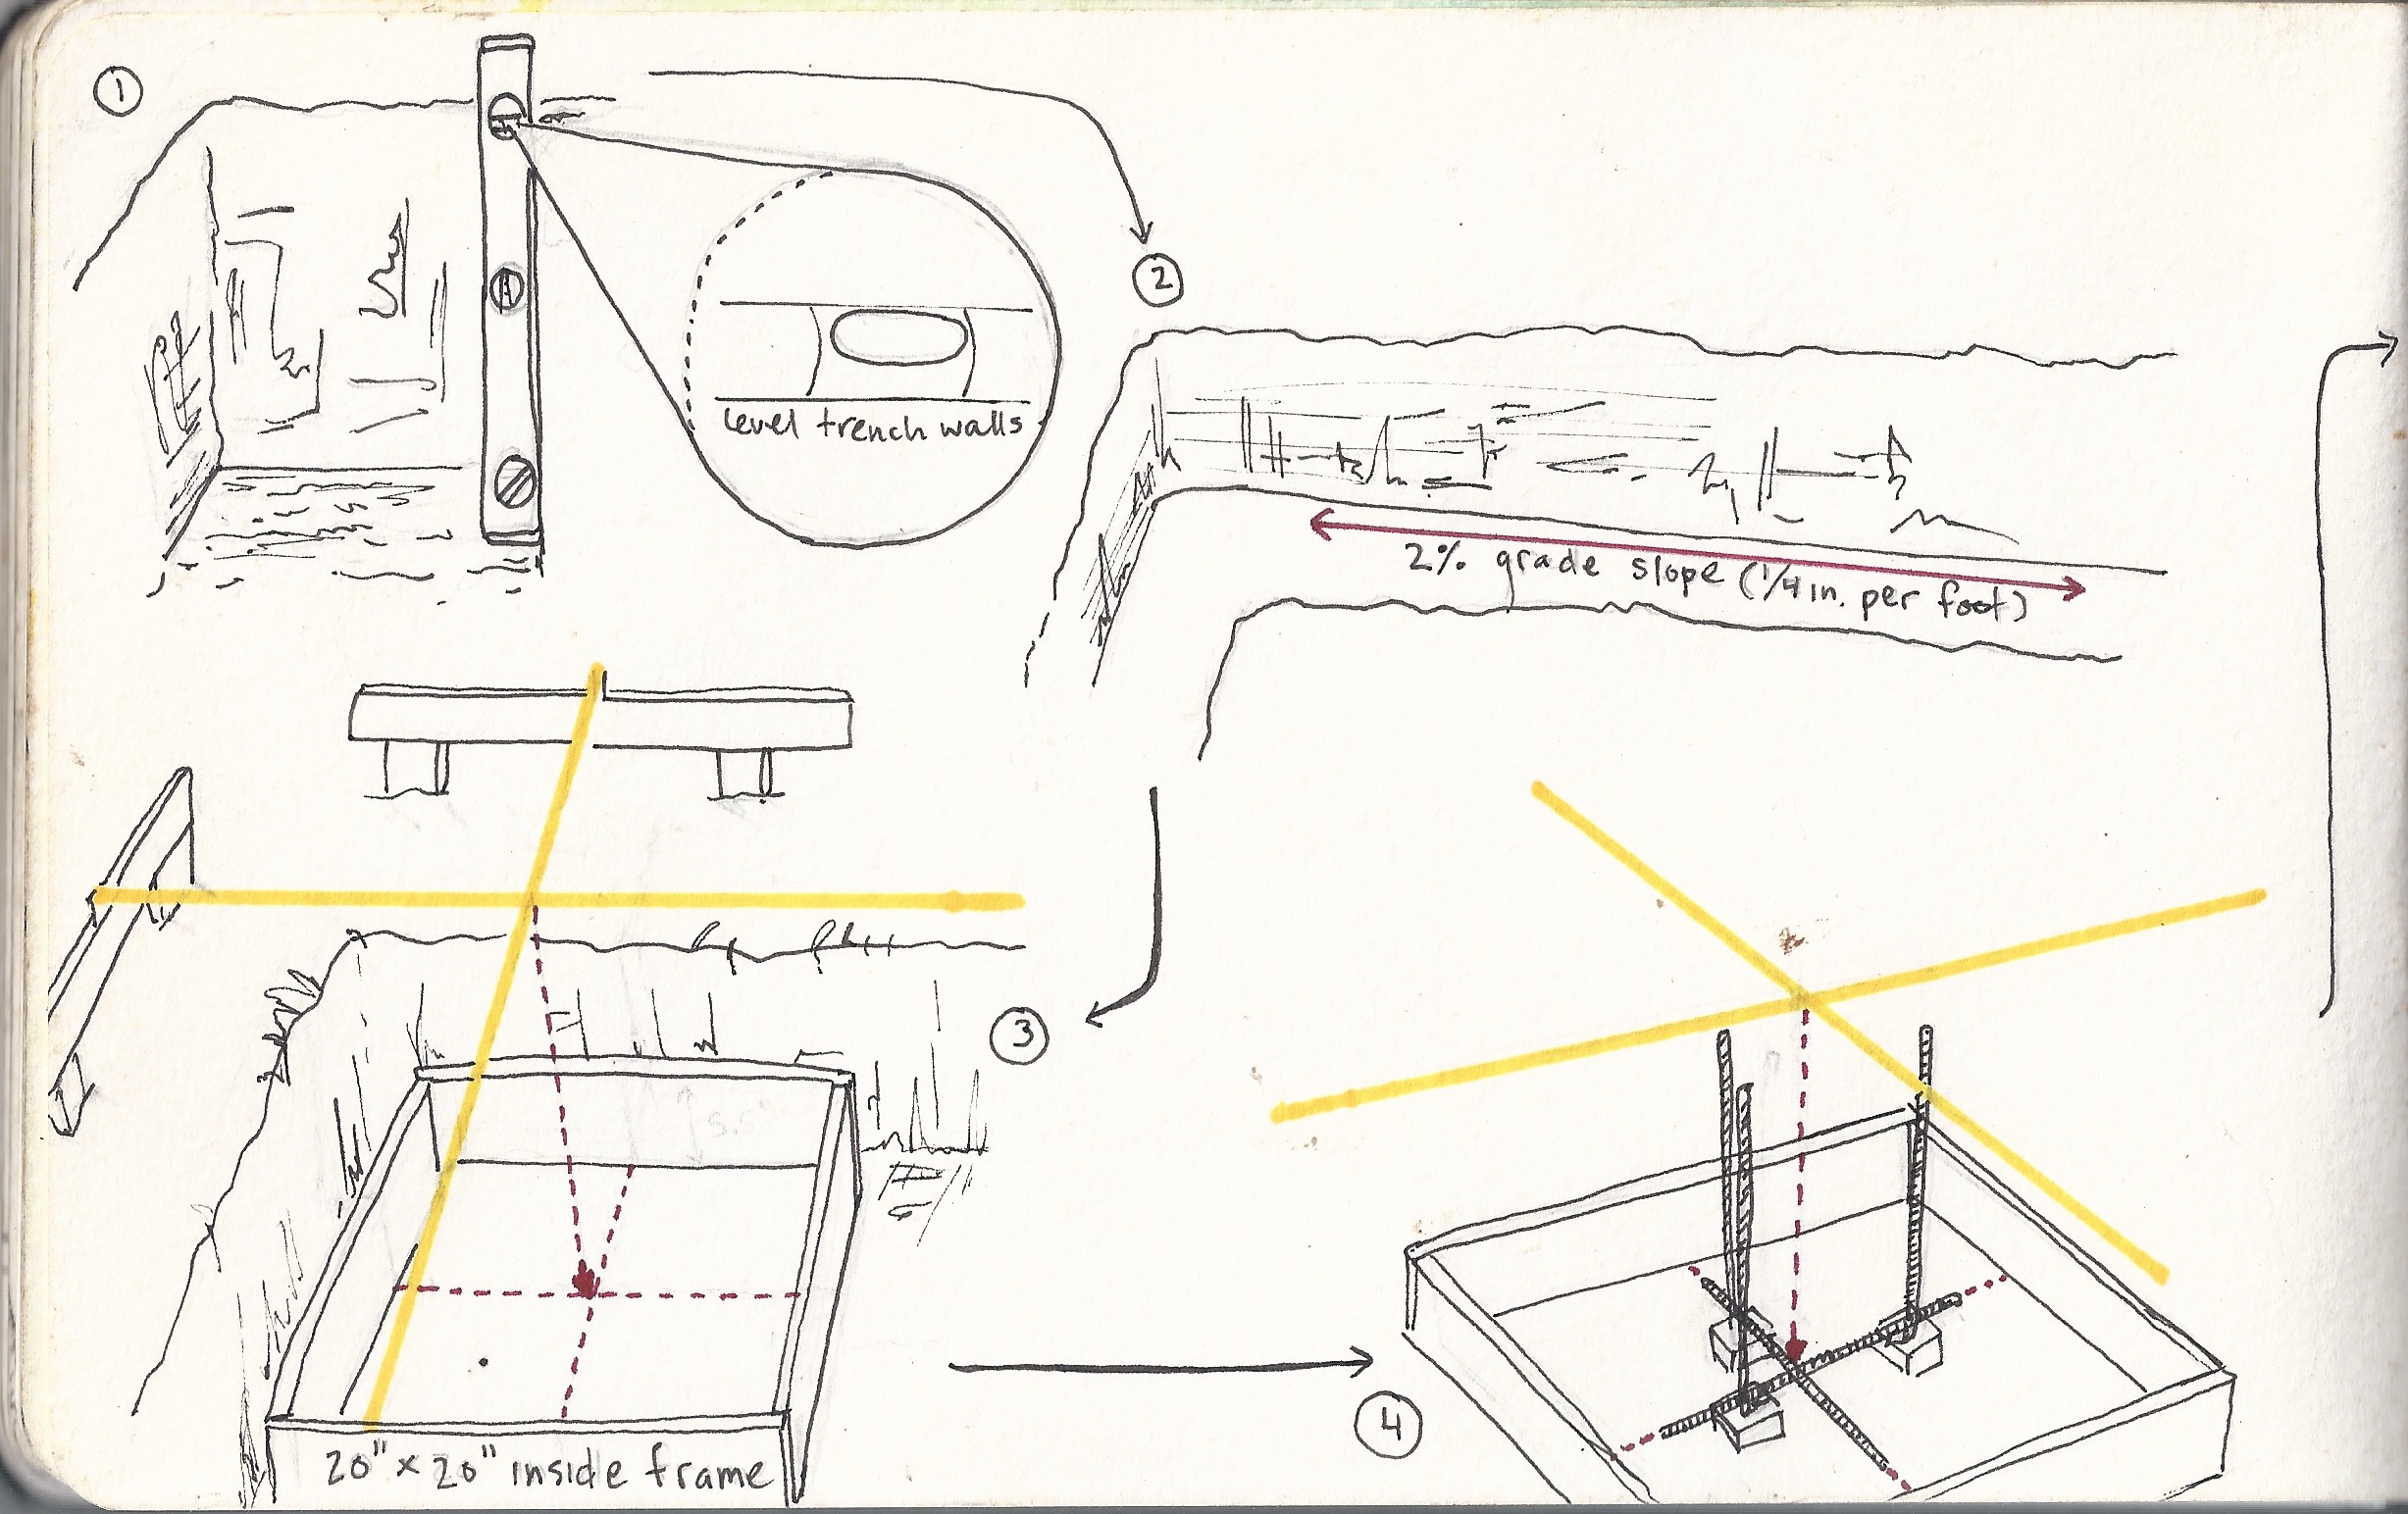 1
level trench walls
2
2% grade slope (1/4 in. per foot)
3
5.5"
20" x 20" inside frame
4